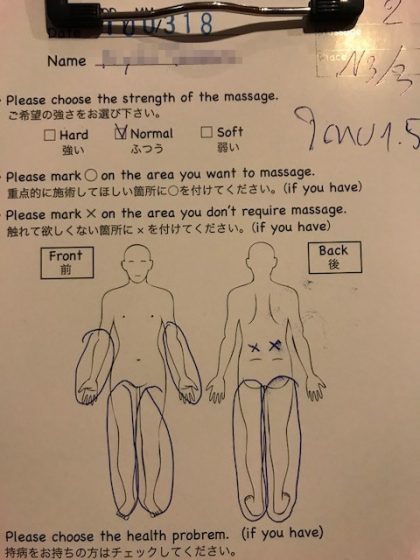 Date 100318
Name
2
N3/3
Please choose the strength of the massage.
ご希望の強さをお選び下さい。
Hard Normal Soft
強い ふつう 弱い
1.5
Please mark ○ on the area you want to massage.
重点的に施術してほしい箇所に○を付けてください。(if you have)
Please mark × on the area you don't require massage.
触れて欲しくない箇所に×を付けてください。(if you have)
Front
前
Back
後
Please choose the health probrem. (if you have)
持病をお持ちの方はチェックしてください。